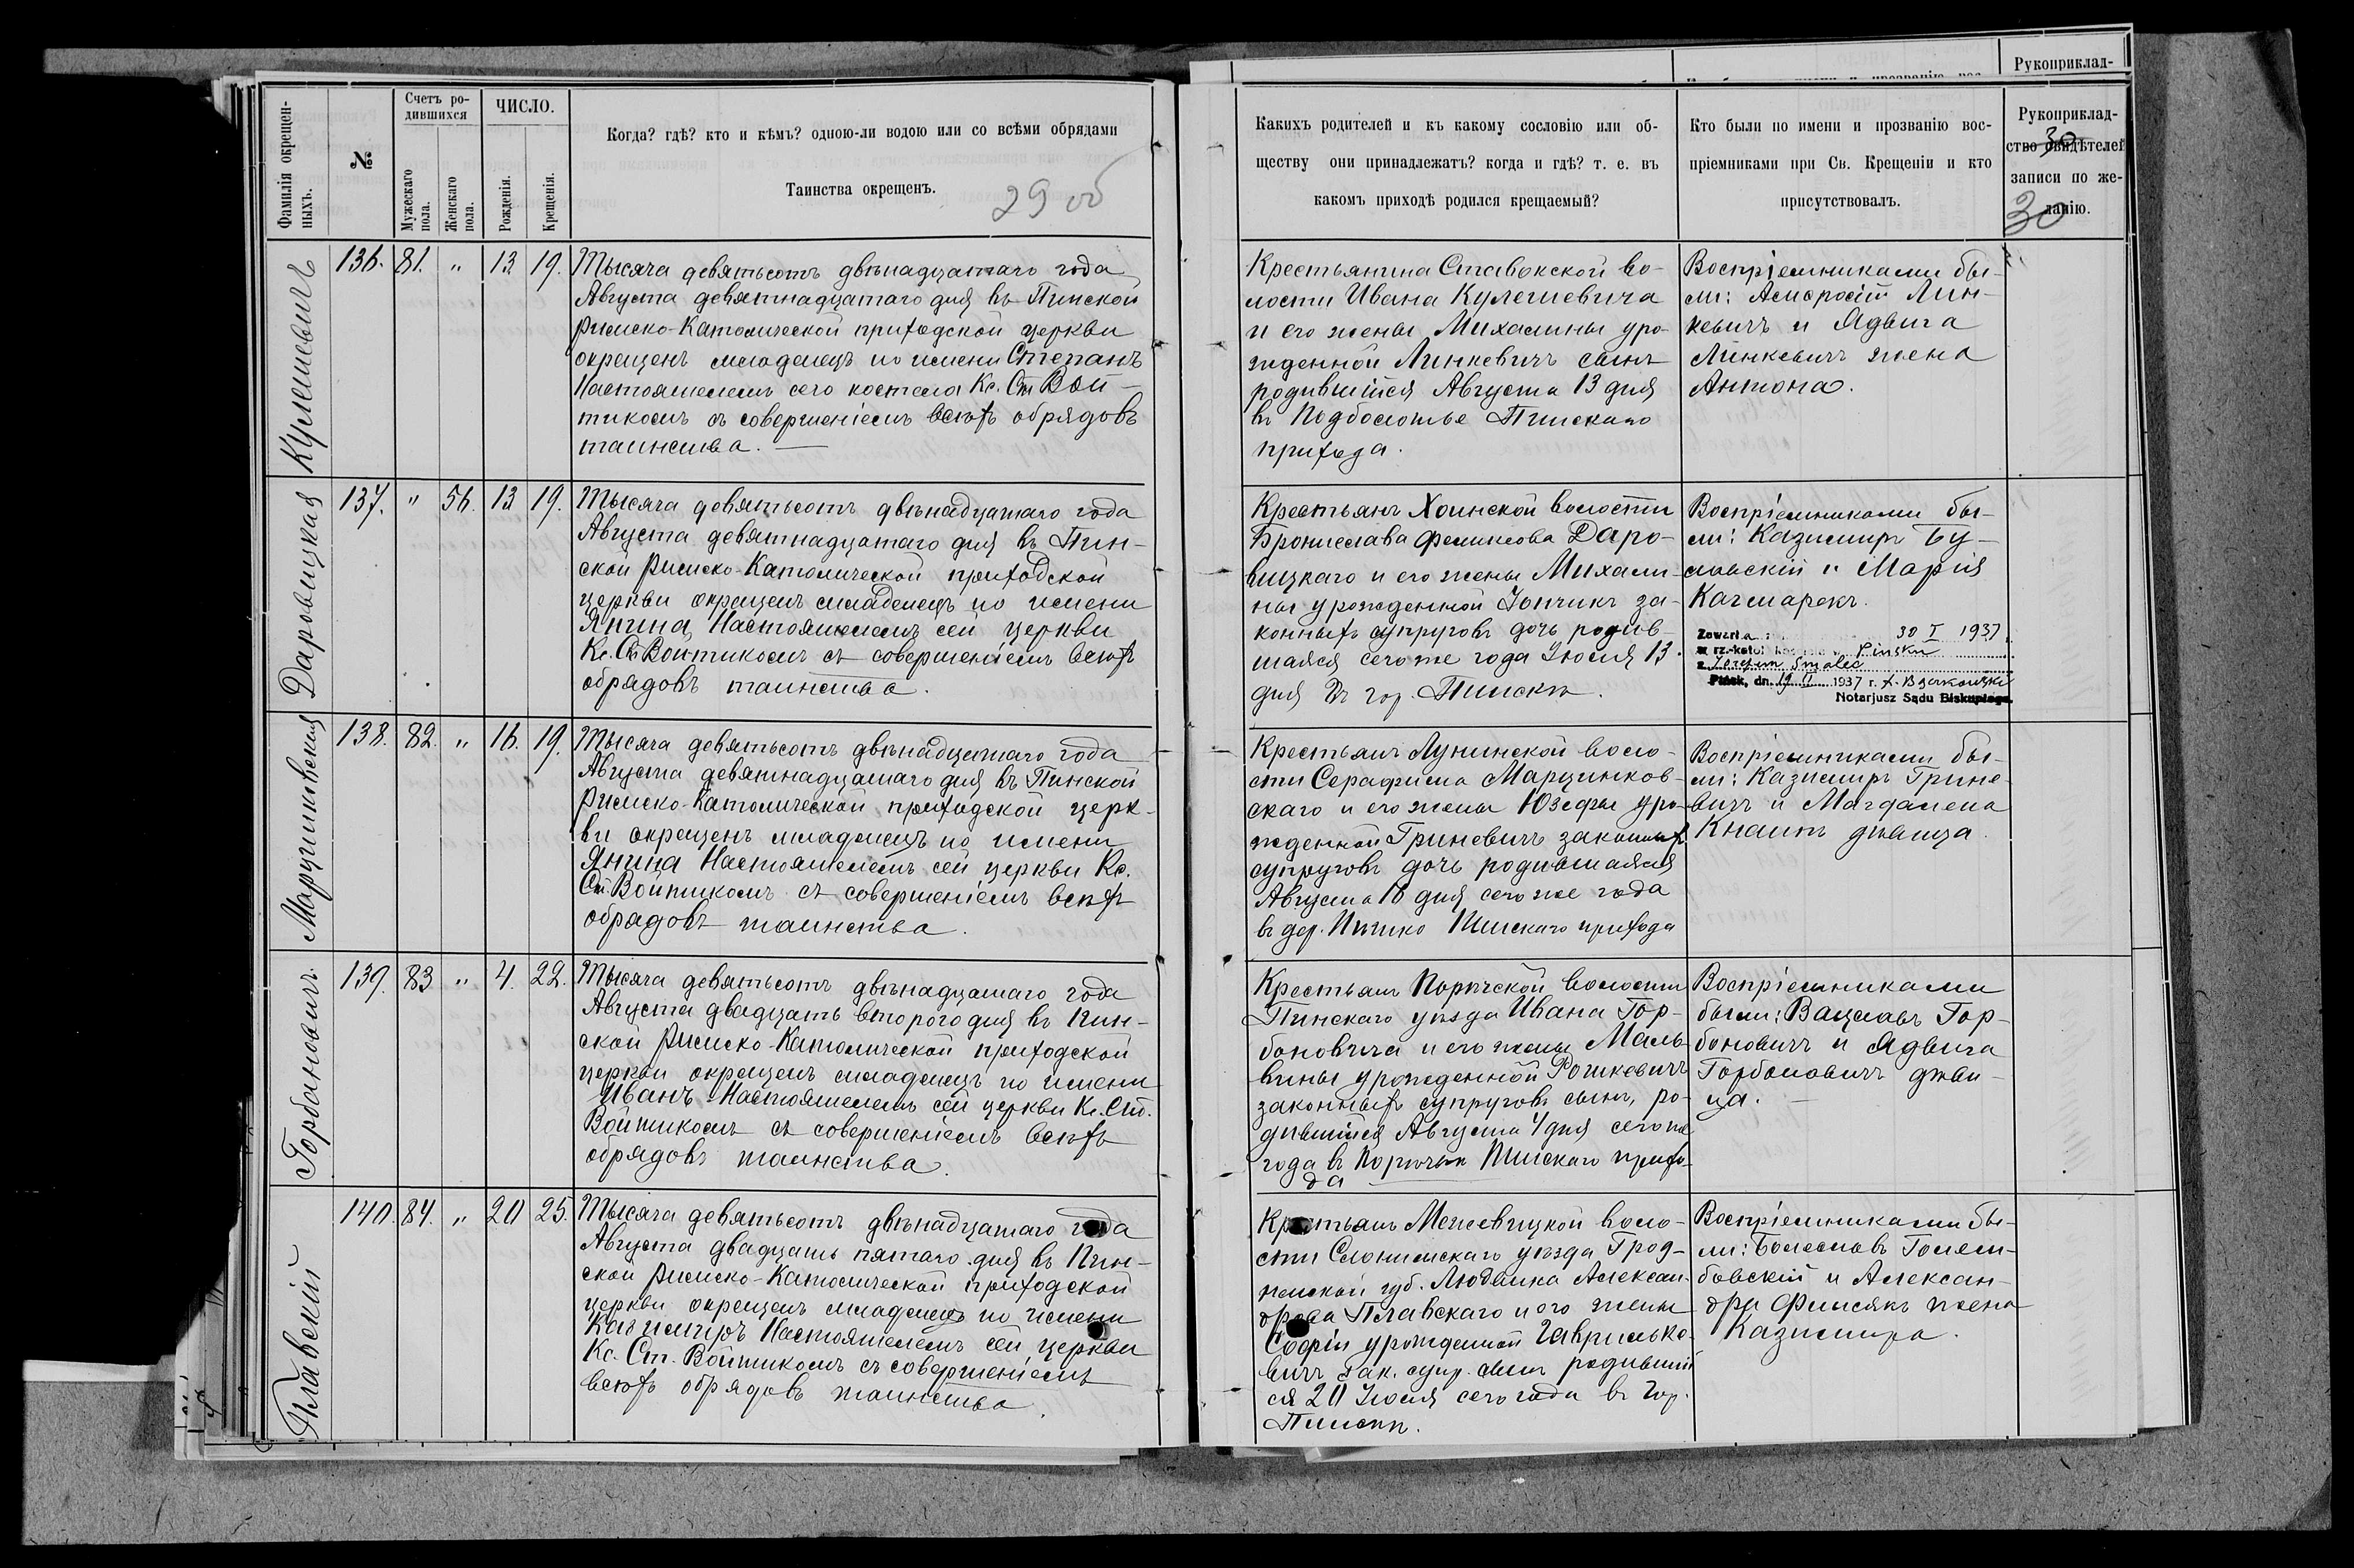 Рукоприклад-
Фамилія окрещен-
ныхъ.
№
Счетъ ро-
дившихся
Мужескаго
пола.
Женскаго
пола.
ЧИСЛО.
Рожденія.
Крещенія.
Когда? гдѣ? кто и кѣмъ? одною-ли водою или со всѣми обрядами
Таинства окрещенъ.
29 об
Какихъ родителей и къ какому сословію или об-
ществу они принадлежатъ? когда и гдѣ? т. е. въ
какомъ приходѣ родился крещаемый?
Кто были по имени и прозванію вос-
пріемниками при Св. Крещеніи и кто
присутствовалъ.
Рукоприклад-
ство свидѣтелей
записи по же-
ланію.
30
30
Кулешевичъ
136. 81. " 13 19.
Тысяча девятьсотъ двѣнадцатаго года
Августа девятнадцатаго дня въ Пинской
Римско-Католической приходской церкви
окрещенъ младенецъ по имени Степанъ
Настоятелемъ сего костела Кс. Ст. Вой-
тикомъ съ совершеніемъ всѣхъ обрядовъ
таинства.
Крестьянина Ставокской во-
лости Ивана Кулешевича
и его жены Михалины уро-
жденной Линкевичъ сынъ
родившійся Августа 13 дня
въ Подболотье Пинскаго
прихода.
Воспріемниками бы-
ли: Лин-
кевичъ и Ядвига
Линкевичъ жена
Антона.
Даровицкая
137. " 56. 13 19.
Тысяча девятьсотъ двѣнадцатаго года
Августа девятнадцатаго дня въ Пин-
ской Римско-Католической приходской
церкви окрещенъ младенецъ по имени
Янина, Настоятелемъ сей церкви
Кс. Ст. Войтикомъ съ совершеніемъ всѣхъ
обрядовъ таинства.
Крестьянъ Хоинской волости
Бронислава Феликсова Даро-
вицкаго и его жены Михали-
ны урожденной Іончикъ за-
конныхъ супруговъ дочь родив-
шаяся сего же года Іюля 13
дня въ гор. Пинскѣ.
Воспріемниками бы-
ли: Казимиръ Бу-
лавскій и Марія
Качмарекъ.
Zawarła 30 I 1937
w rz.-katol. Pińsku
z Józefem Smalec
Pińsk, dn. 19 II 1937 r.
Notarjusz Sądu Biskupiego.
Марцинковская
138. 82. " 16. 19.
Тысяча девятьсотъ двѣнадцатаго года
Августа девятнадцатаго дня въ Пинской
Римско-Католической приходской церк-
ви окрещенъ младенецъ по имени
Янина Настоятелемъ сей церкви Кс.
Ст. Войтикомъ съ совершеніемъ всѣхъ
обрядовъ таинства.
Крестьянъ Лунинской воло-
сти Серафима Марцинков-
скаго и его жены Юзефы уро-
жденной Гриневичъ законныхъ
супруговъ дочь родившаяся
Августа 16 дня сего же года
въ дер. Пинскаго прихода
Воспріемниками бы-
ли: Казимиръ Грине-
вичъ и Магдалена
Кнаитъ дѣвица.
Горбановичъ.
139. 83 " 4. 22.
Тысяча девятьсотъ двѣнадцатаго года
Августа двадцать второго дня въ Пин-
ской Римско-Католической приходской
церкви окрещенъ младенецъ по имени
Иванъ Настоятелемъ сей церкви Кс. Ст.
Войтикомъ съ совершеніемъ всѣхъ
обрядовъ таинства.
Крестьянъ Порѣчской волости
Пинскаго уѣзда Ивана Гор-
бановича и его жены Маль-
вины урожденной Рошкевичъ
законныхъ супруговъ сынъ, ро-
дившійся Августа 4 дня сего же
года въ Порѣчьи Пинскаго прихо-
да
Воспріемниками
были: Вацлавъ Гор-
бановичъ и Ядвига
Горбановичъ дѣви-
ца.
Плавскій
140. 84. " 20 25.
Тысяча девятьсотъ двѣнадцатаго года
Августа двадцать пятаго дня въ Пин-
ской Римско-Католической приходской
церкви окрещенъ младенецъ по имени
Казимиръ Настоятелемъ сей церкви
Кс. Ст. Войтикомъ съ совершеніемъ
всѣхъ обрядовъ таинства.
Крестьянъ воло-
сти Слонимскаго уѣзда Грод-
ненской губ. Людвика Алексан-
дрова Плавскаго и его жены
Софіи урожденной Гаврилько-
вичъ зак. супр. сынъ родившій-
ся 20 Іюля сего года въ гор.
Пинскѣ.
Воспріемниками бы-
ли: Болеславъ Голем-
бовскій и Алексан-
дра жена
Казимира.